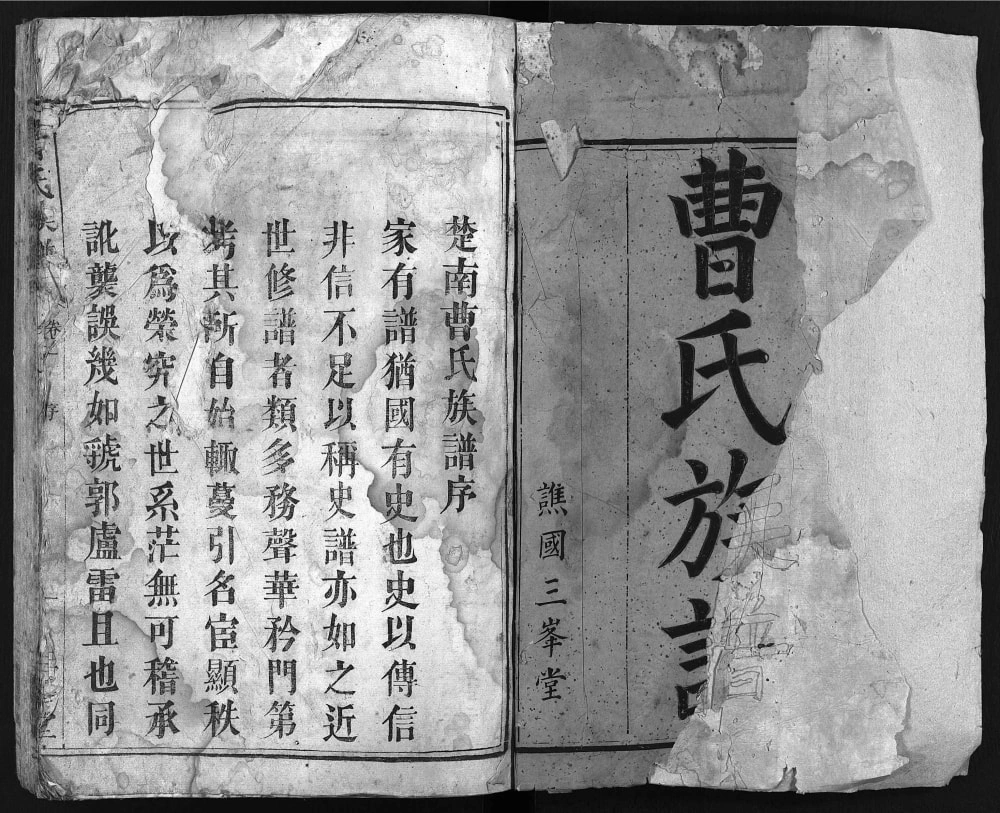 曹氏族譜
譙國三峯堂
楚南曹氏族譜序
家有譜猶國有史也史以傳信
非信不足以稱史譜亦如之近
世修譜者類多務聲華矜門第
考其所自始輙蔓引名宦顯秩
以爲榮究之世系茫無可稽承
訛襲誤幾如虢郭盧雷且也同
氏族譜
卷
序